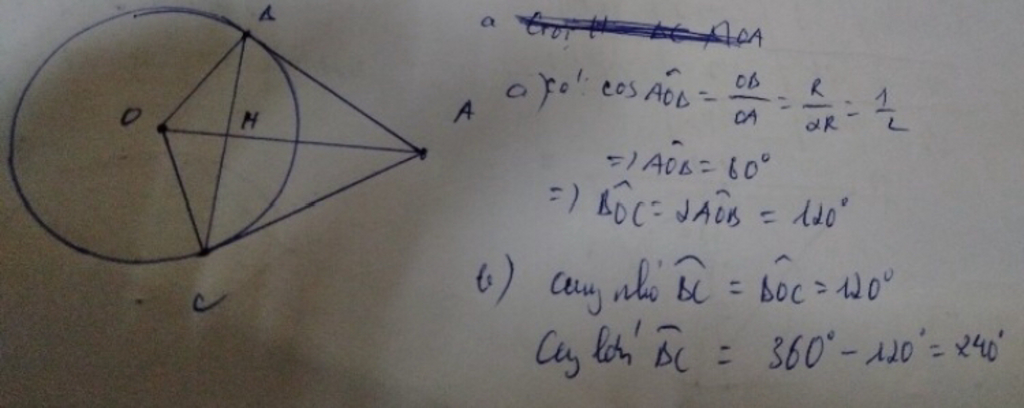 B
O
H
A
C
a
OA
a) có: cos AÔB = OB/OA = R/2R = 1/2
=) AÔB = 60°
=) BÔC = 2AÔB = 120°
b) Cung nhỏ BC = BÔC = 120°
Cung lớn BC = 360° - 120° = 240°